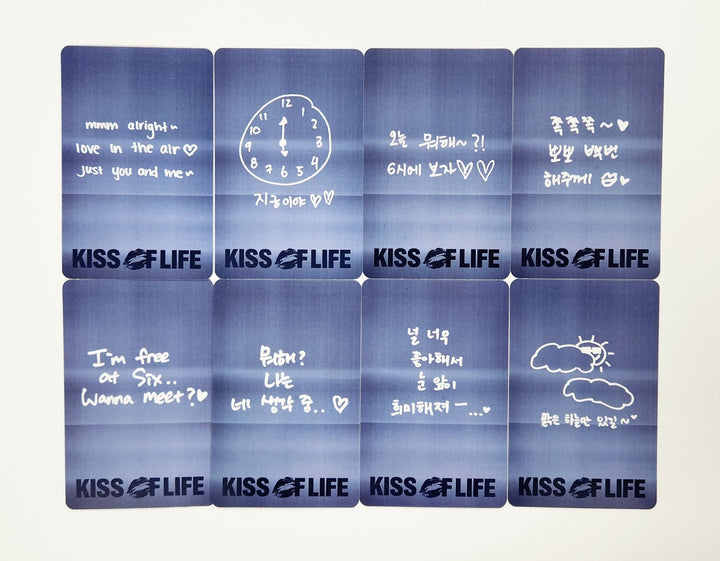 mmm alright~
love in the air♡
just you and me~
KISS OF LIFE
12
1
2
3
4
5
6
7
8
9
10
11
지금이야♡♡
KISS OF LIFE
오늘 뭐해~?!
6시에 보자♡♡
KISS OF LIFE
쪽쪽쪽~♥
뽀뽀 백번
해주께 ♥
KISS OF LIFE
I'm free
at Six..
Wanna meet?♥
KISS OF LIFE
뭐해?
나는
네 생각 중..♡
KISS OF LIFE
널 너무
좋아해서
눈 앞이
희미해져ㅡ...♥
KISS OF LIFE
맑은 하늘만 있길~♥
KISS OF LIFE